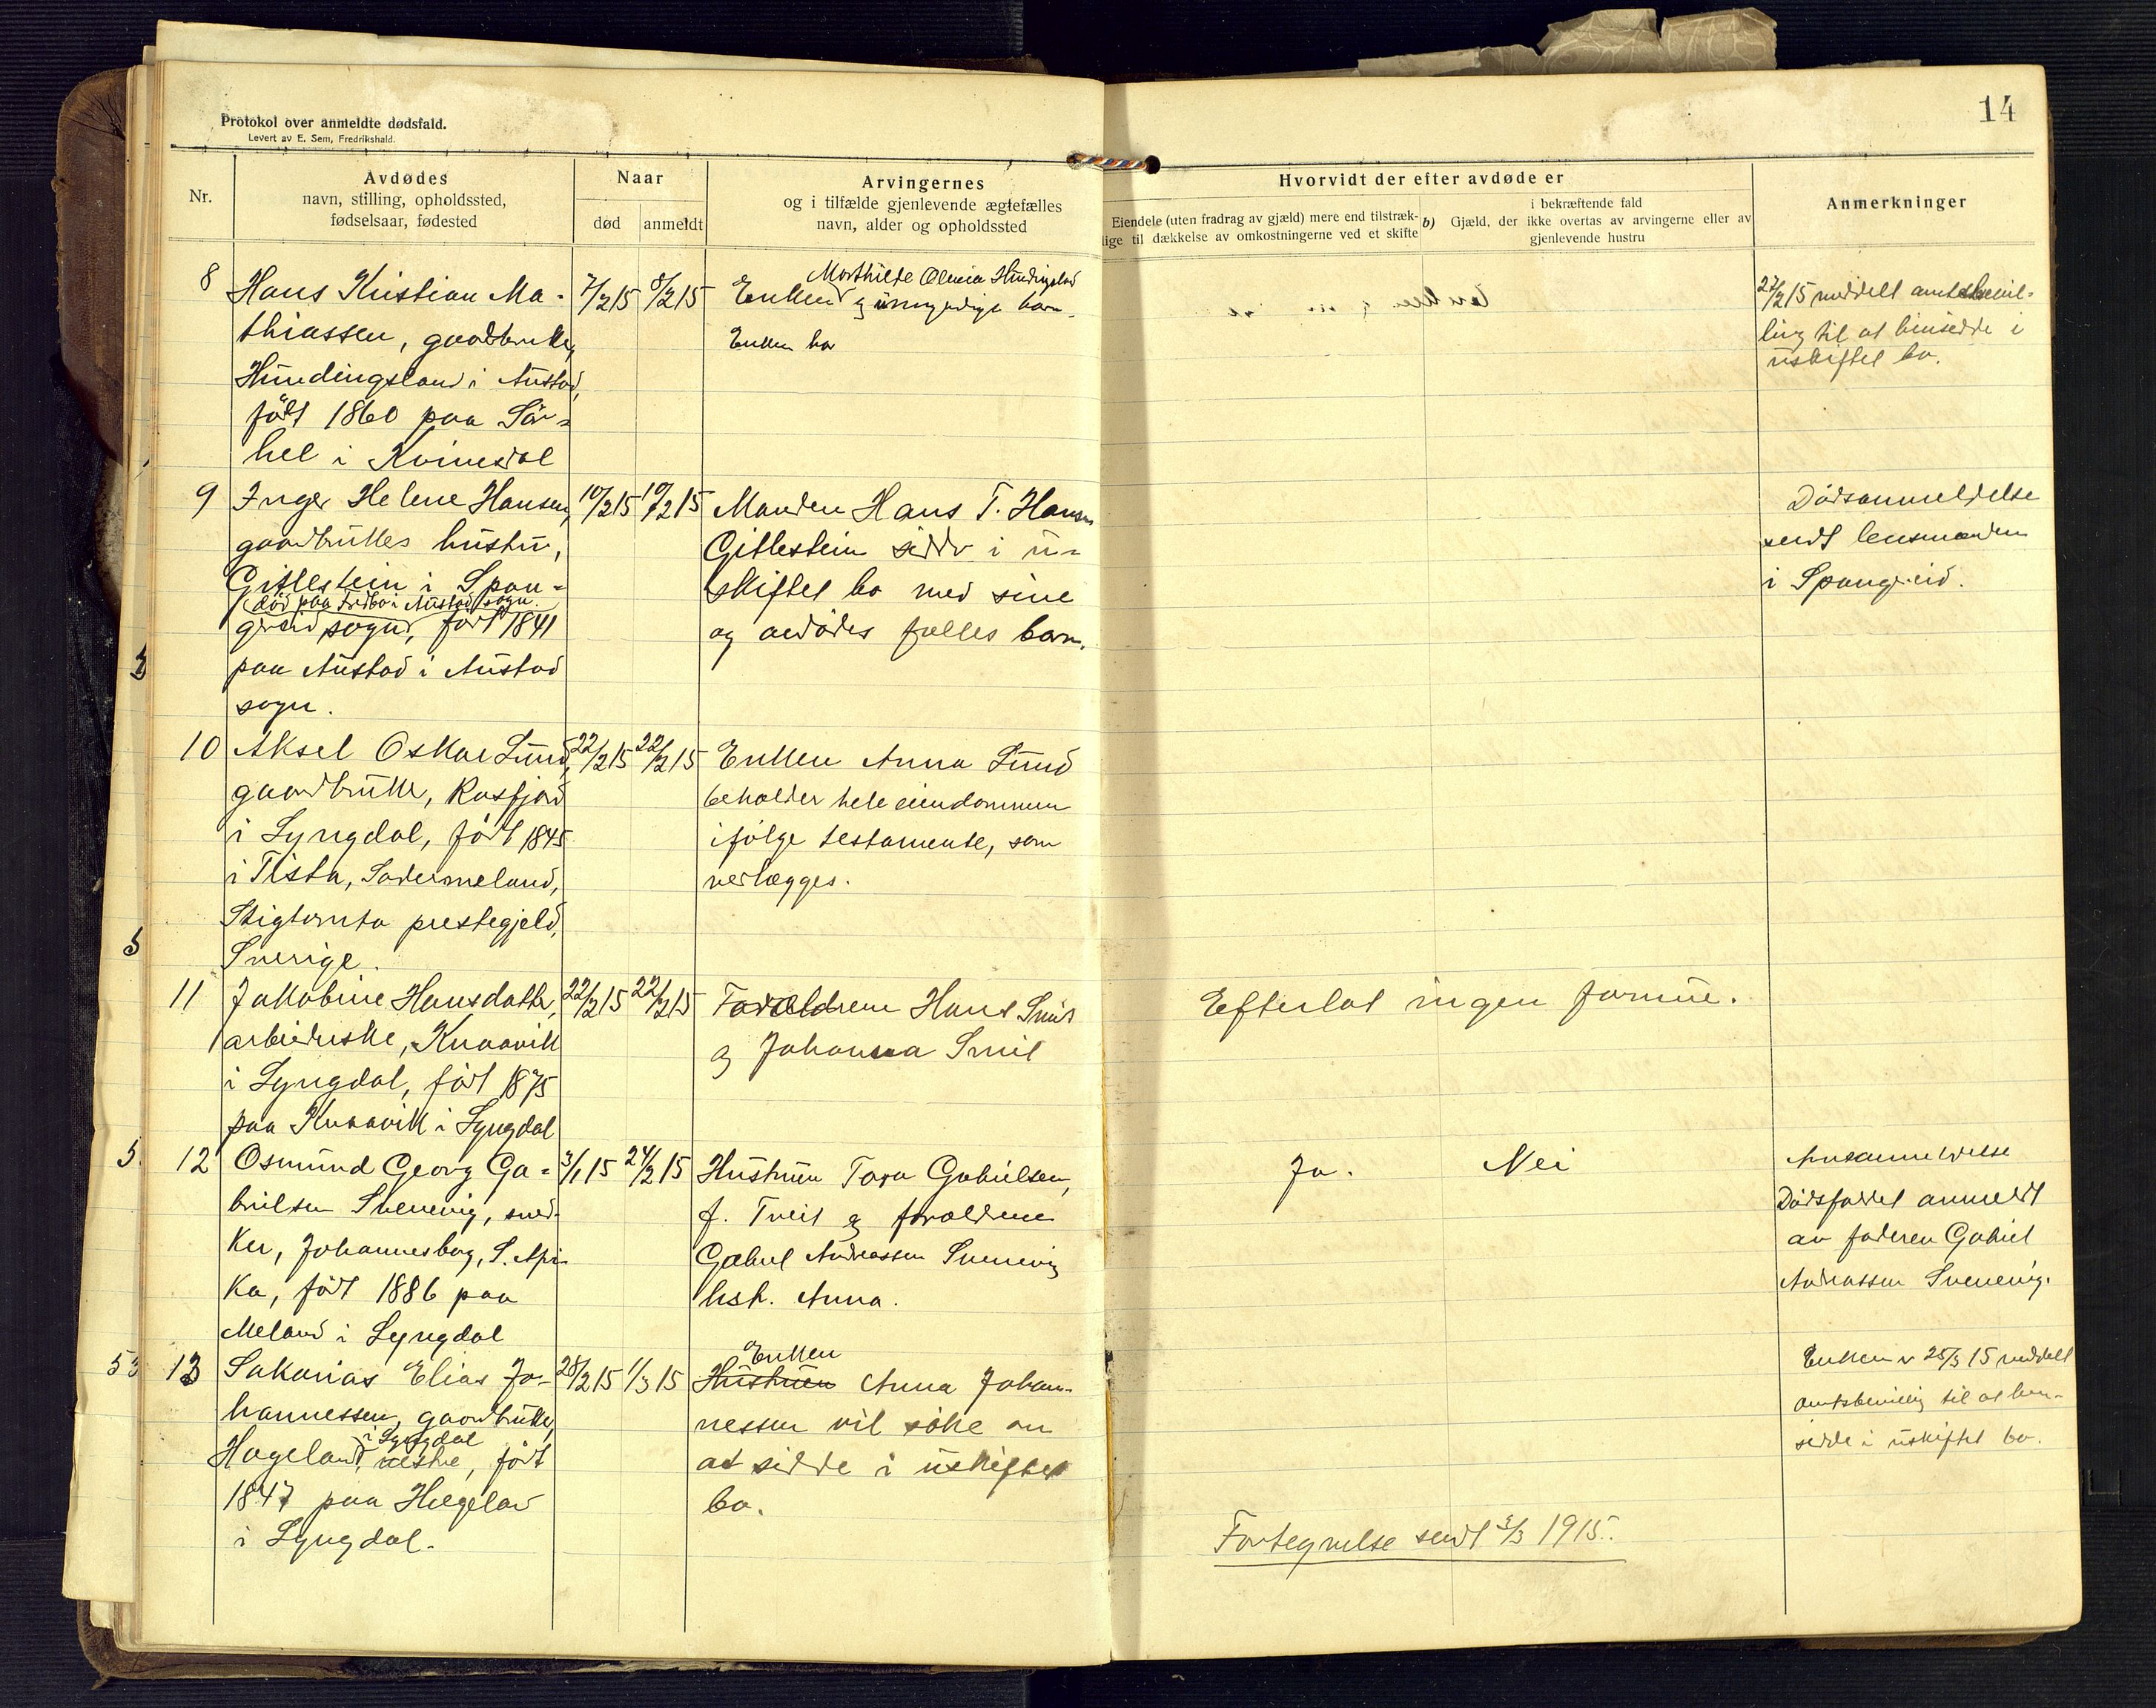 14
Protokol over anmeldte dødsfald.
Levert av E. Sem, Fredrikshald.
Nr.
Avdødes
navn, stilling, opholdssted,
fødselsaar, fødested
Naar
død
anmeldt
Arvingernes
og i tilfælde gjenlevende ægtefælles
navn, alder og opholdssted
Hvorvidt der efter avdøde er
Eiendele (uten fradrag av gjæld) mere end tilstræk-
lige til dækkelse av omkostningerne ved et skifte
b) Gjæld, der
i bekræftende fald
ikke overtas av arvingerne eller av
gjenlevende hustru
Anmerkninger
8
Hans Kristian Ma-
thiassen, gaardbruker,
Hundingsland i Austad,
født 1860 paa Sør-
hel i Kvinesdal
7/2 15
8/2 15
Mathilde Hundingsland
Enken og umyndige barn.
Enken har
27/2 15 meddelt amtsbevil-
ling til at hensidde i
uskiftet bo.
9
Inger Helene Hansen,
gaardbrukers hustru,
Gitlestein i Span-
(død paa i Austad sogn.
gereid sogn, født 1841
paa Austad i Austad
sogn.
10/2 15
19/2 15
Manden Hans T. Hansen
Gitlestein sidder i u-
skiftet bo med sine
og avdødes fælles barn.
Dødsanmeldelse
sendt lensmanden
i Spangereid.
10
Aksel Oskar Lund,
gaardbruker, Rosfjord
i Lyngdal, født 1845
i Tista, Södermeland,
Stigtomta prestegjeld,
Sverige.
22/2 15
22/2 15
Enken Anna Lund
beholder hele eiendommen
ifølge testamente, som
verlægges.
11
Jakobine Hansdatter,
arbeiderske, Knaavik
i Lyngdal, født 1875
paa Knaavik i Lyngdal
22/2 15
22/2 15
Forældrene Hans
og Johanna
Efterlot ingen formue.
5
12
Osmund Georg Ga-
brielsen Svenevig, sned-
ker, Johannesburg, S. Afri-
ka, født 1886 paa
Meland i Lyngdal
3/1 15
24/2 15
Hustruen Tora Gabrielsen,
f. Tveit og forældrene
Gabriel Andreassen Svenevig
hst. Anna.
Ja.
Nei
Dødsfaldet anmeldt
av faderen Gabriel
Andreassen Svenevig.
13
Sakarias Elias Jo-
hannessen, gaardbruker,
i Lyngdal
Hageland, vestre, født
1847 paa Hægeland
i Lyngdal.
28/2 15
1/3 15
Enken
Hustruen Anna Johan-
nessen vil søke om
at sidde i uskiftet
bo.
Enken er 25/3 15 meddelt
amtsbevilling til at hen-
sidde i uskiftet bo.
Fortegnelse sendt 3/3 1915.